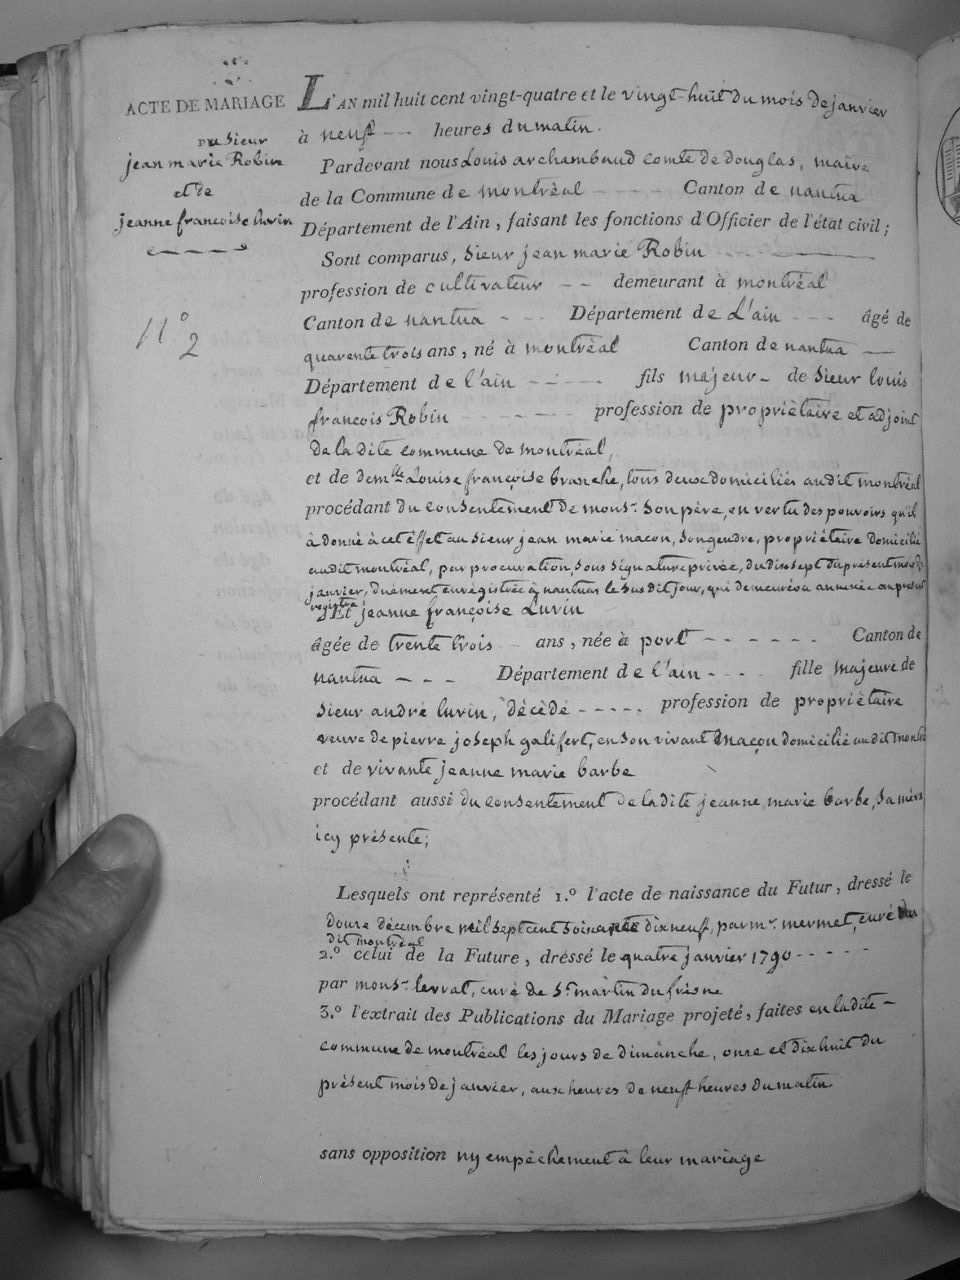 ACTE DE MARIAGE
du sieur
jean marie Robin
et de
jeanne francoise Luvin
n° 2
L'AN mil huit cent vingt-quatre et le vingt-huit du mois de janvier
à neuf heures du matin.
Pardevant nous Louis archambaud comte de douglas, maire
de la Commune de montréal Canton de nantua
Département de l'Ain, faisant les fonctions d'Officier de l'état civil;
Sont comparus, sieur jean marie Robin
profession de cultivateur demeurant à montréal
Canton de nantua Département de L'ain âgé de
quarente trois ans, né à montréal Canton de nantua
Département de l'ain fils majeur de sieur louis
françois Robin profession de propriètaire et adjoint
de la dite commune de montréal,
et de demlle Louise françoise branche, tous deux domiciliés audit montréal
procédant du consentement de monsr. son père, en vertu des pouvoirs qu'il
à donné à cet èffet au sieur jean marie macon, son gendre, propriétaire domicilié
audit montréal, par procuration, sous signature privée, du dix sept du présent mois de
janvier, duèment enregistrée à nantua le susdit jour, qui demeurera annexée au présent
registre
Et jeanne françoise Luvin
âgée de trente trois ans, née à port Canton de
nantua Département de l'ain fille majeure de
sieur andré luvin, décèdé profession de propriètaire
veuve de pierre joseph galifert, en son vivant maçon domicilié audit montréal
et de vivante jeanne marie barbe
procédant aussi du consentement de la dite jeanne marie barbe, sa mère
icy présente;
Lesquels ont représenté 1.° l'acte de naissance du Futur, dressé le
douze décembre mil sept cent soixante dix neuf, par mr. mermet, curé du
dit montréal
2.° celui de la Future, dréssé le quatre janvier 1790
par monsr. lerrat, curé de St. martin du frèsne
3.° l'extrait des Publications du Mariage projeté, faites en la dite
commune de montréal les jours de dimanche, onze et dix huit du
présent mois de janvier, aux heures de neuf heures du matin
sans opposition ny empêchement à leur mariage